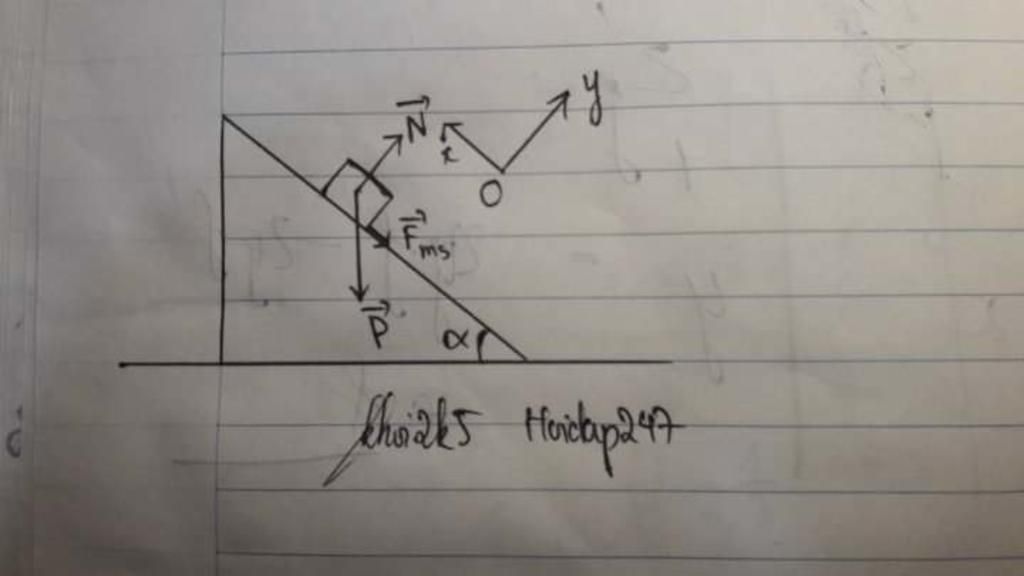 y
N
x
O
Fms
P
α
khoi2k5 Hoidap247